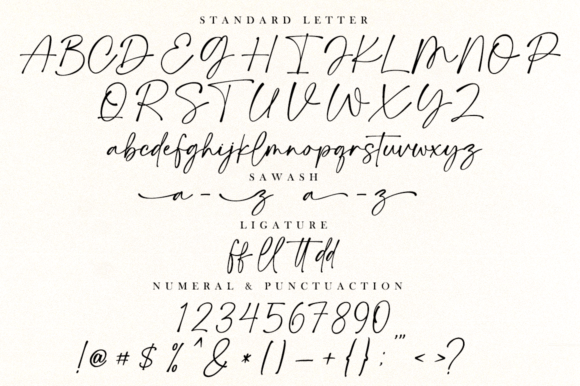 STANDARD LETTER
ABCDEGHIJKLMNOP
QRSTUVWXYZ
abcdefghijklmnopqrstuvwxyz
SAWASH
a-z a--z
LIGATURE
ff ll tt dd
NUMERAL & PUNCTUACTION
1234567890
!@#$%^&*()—+{};'"<>?